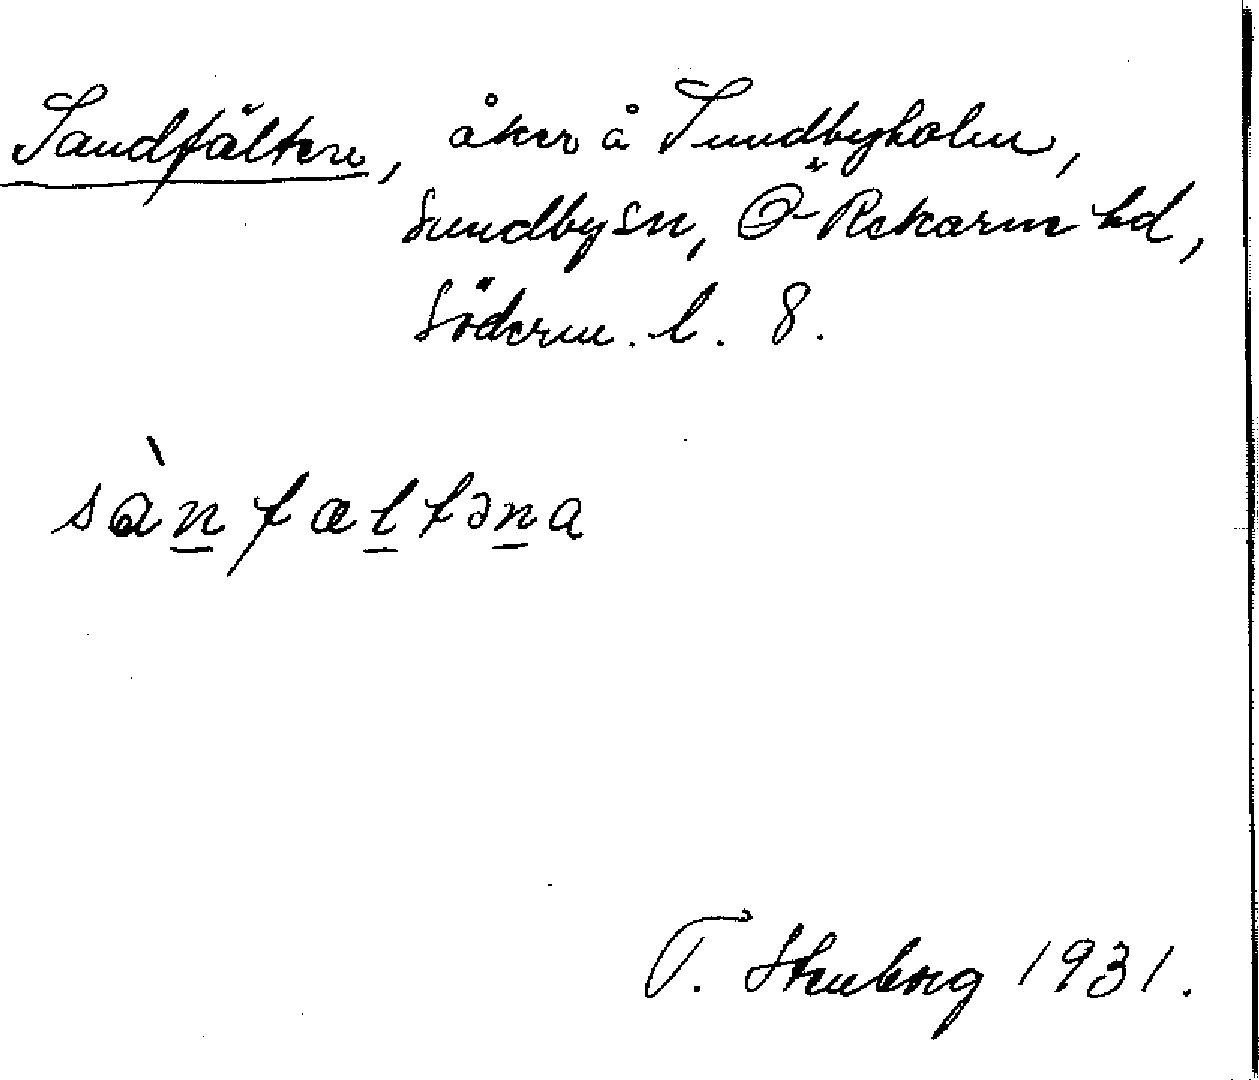 Sandfälten, åker å Sundbyholm,
Sundby sn, Ö-Rekarne hd,
Söderm. l. 8.
sànfæltəna
T. Stenberg 1931.